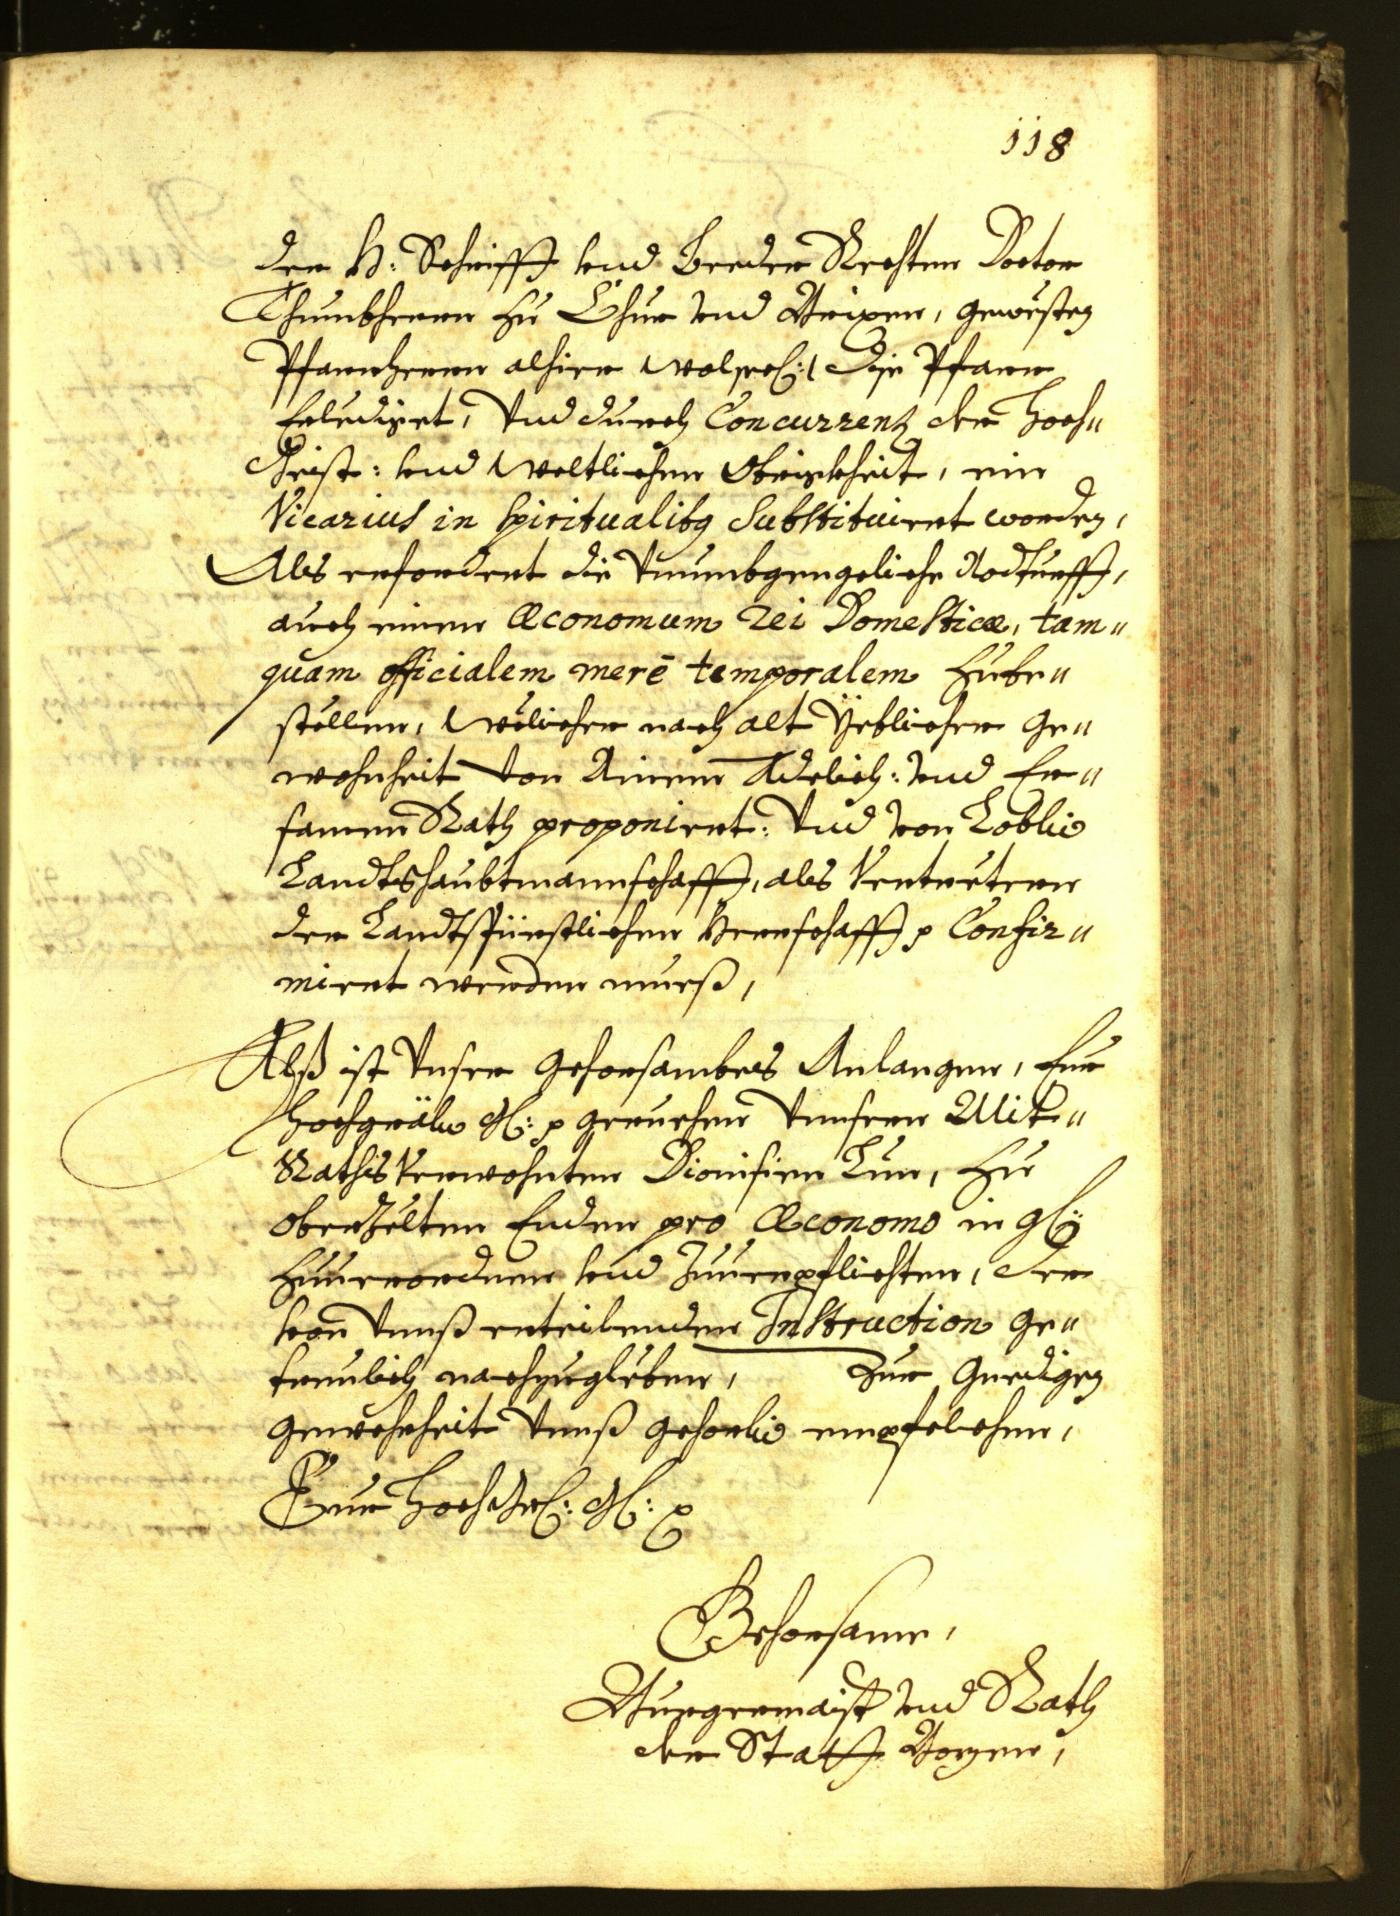 118
der H: Schrifft vnd Beeder Rechten Doctor
Thumbherrn zu Chur vnd Brixen, gewesten
Pfarrherrn alhier die Pfarr
Erledigt, Vnd durch Concurrenz der hoch"
Geist: vnd Weltlichen Obrigkheit, ein
Vicarius in spiritualibus substituirt worden,
Als erfordert die Vnumbgengeliche Nodturfft,
auch einen Œconomum rei Domesticæ, tam"
quam officialem merè temporalem zube"
stellen, Welicher nach alt Yeblicher ge"
wohnheit von Ainem Adelich: vnd Er"
samen Rath proponirt: Vnd von Löblich
Landtshaubtmannschafft, als Vertretern
der Landtsfürstlichen Herrschafft p Confir"
mirt werden muess,
Alß ist Vnser gehorsambes Anlangen, Eur
hochgräfl: Gl: p geruehen Vnnsern Mit"
Raths Verwohnten Dionisien Lun, zu
oberzelten Enden pro Œconomo in gl:
zuuerordnen vnd zuuerpflichten, der
von Vnnß erteilenden Instruction ge"
treulich nachzugleben, zur Gnedigen
gewehrheit Vnnß gehorlich empfelchen,
Eur hochGrl: Gl: p
Gehorsame,
Burgermaister vnd Rath
der Statt Bozen,